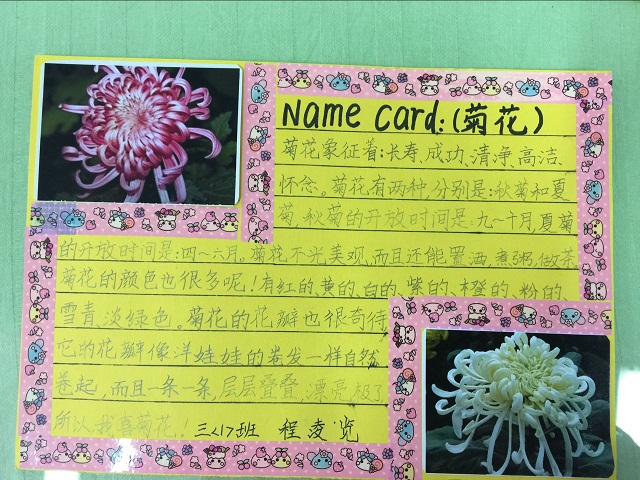 Name card:(菊花)
菊花象征着:长寿、成功、清净、高洁、
怀念。菊花有两种,分别是:秋菊和夏
菊,秋菊的开放时间是:九~十月,夏菊
的开放时间是:四~六月。菊花不光美观,而且还能置酒,煮粥,做茶
菊花的颜色也很多呢!有红的、黄的、白的、紫的、橙的、粉的、
雪青、淡绿色。菊花的花瓣也很奇特
它的花瓣像洋娃娃的卷发一样自然
卷起,而且一条一条,层层叠叠,漂亮极了
所以,我喜菊花!三<17班 程凌览